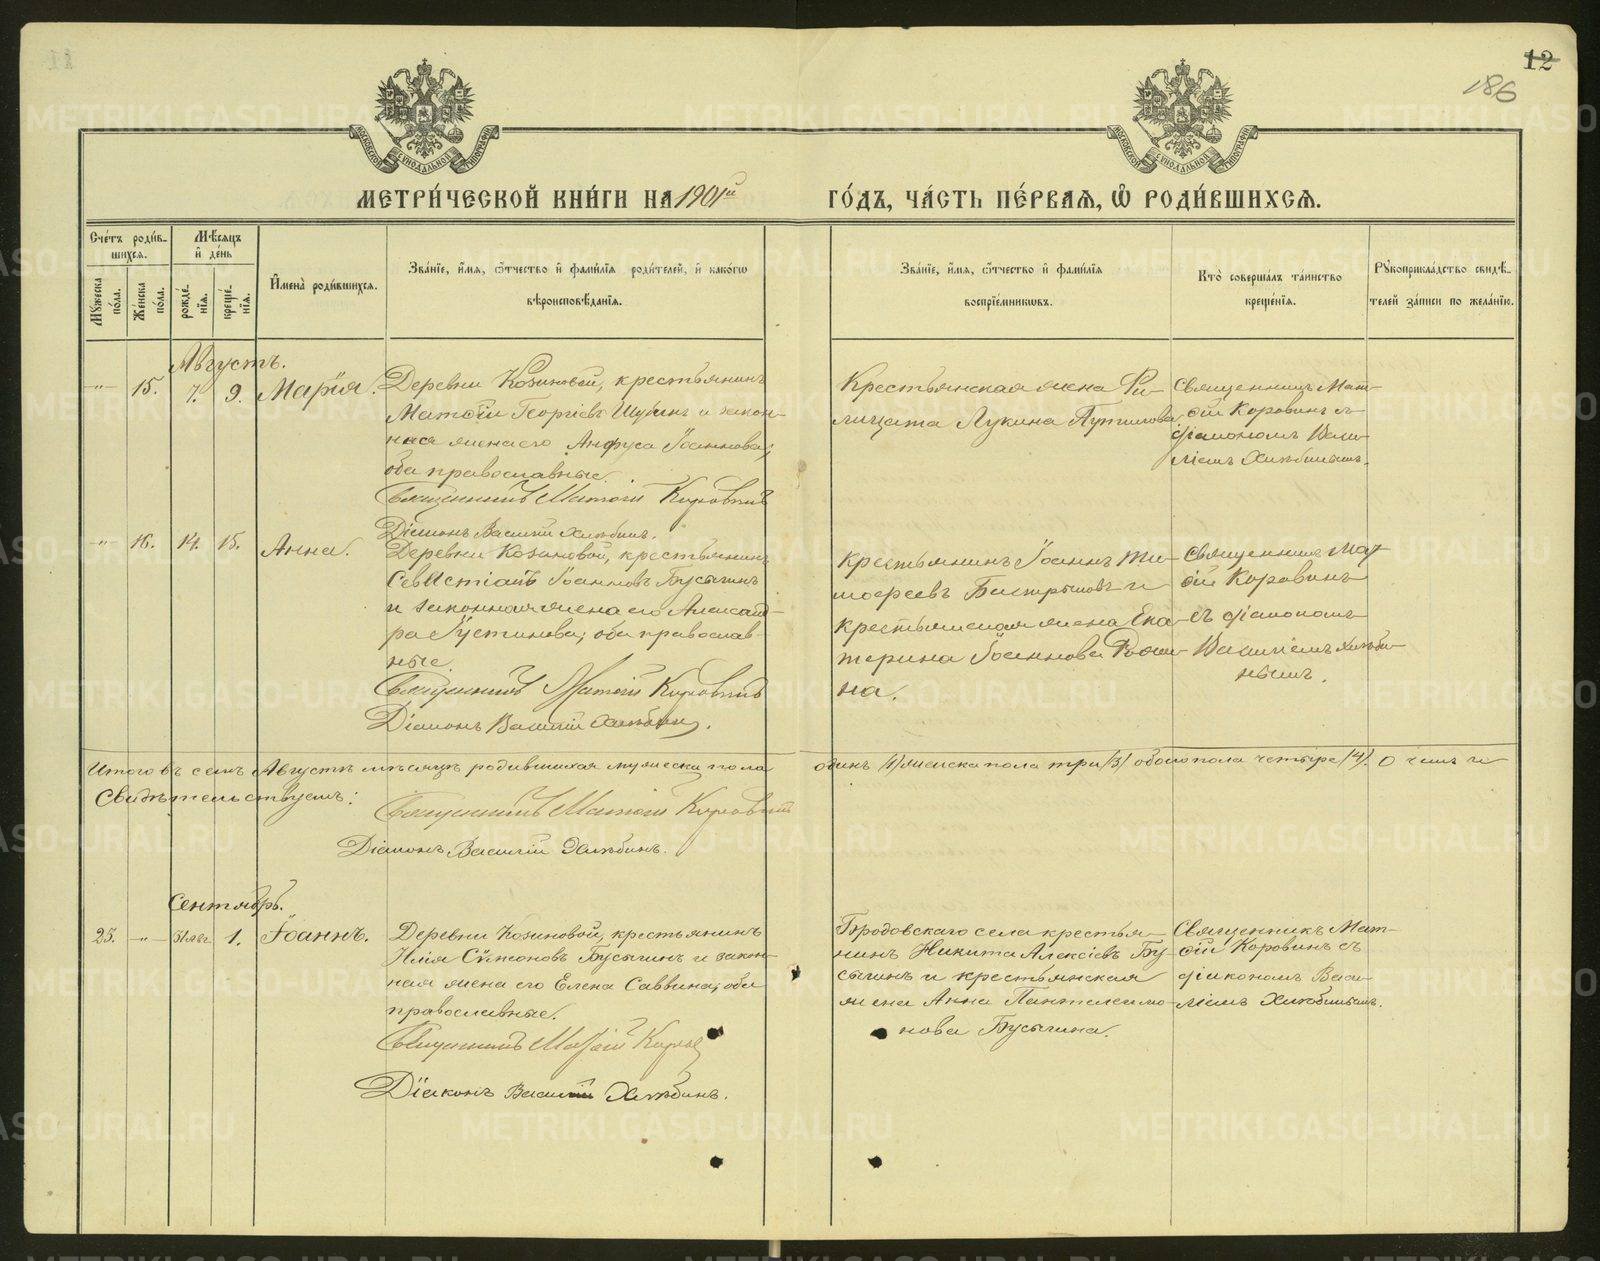 12
186
МОСКОВСКОЙ СѴНОДАЛЬНОЙ ТИПОГРАФІИ
МОСКОВСКОЙ СѴНОДАЛЬНОЙ ТИПОГРАФІИ
МЕТРИ́ЧЕСКОЙ КНИ́ГИ НА 1901й ГО́ДЪ, ЧА́СТЬ ПЕ́РВАЯ, Ѡ҆ РОДИ́ВШИХСЯ.
Сче́тъ роди́в-
шихся.
Мѣ́сяцъ
и҆ де́нь
Му́жеска
по́ла.
Же́нска
по́ла.
рожде́-
нїя.
креще́-
нїя.
И҆мена̀ роди́вшихся.
Зва́нїе, и҆́мя, ѻ҆́тчество и҆ фами́лїя роди́телей, и҆ како́гѡ
вѣроисповѣ́данїя.
Зва́нїе, и҆́мя, ѻ҆́тчество и҆ фами́лїя
воспрїе́мникѡвъ.
Кто̀ соверша́лъ та́инство
креще́нїя.
Рꙋкоприкла́дство свидѣ́-
телей за́писи по жела́нїю.
Августъ.
-"- 15. 7. 9. Марія.
Деревни Козиновой, крестьянинъ
Матѳій Георгіевъ Шубинъ и закон-
ная жена его Анфуса Іоаннова;
оба православные.
Священникъ Матѳій Коровинъ
Діаконъ Василій Хлѣбинъ.
Крестьянская жена Фи-
лицата Лукина Путилова
Священникъ Мат-
ѳій Коровинъ съ
діакономъ Васи-
ліемъ Хлѣбинымъ.
-"- 16. 14. 15. Анна.
Деревни Козиновой, крестьянинъ
Севастіанъ Іоанновъ Бусыгинъ
и законная жена его Александ-
ра Іустинова; оба православ-
ные.
Священникъ Матѳій Коровинъ
Діаконъ Василій Хлѣбинъ.
Крестьянинъ Іоаннъ Ти-
моѳеевъ и
крестьянская жена Ека-
терина Іоаннова
на.
Священникъ Мат-
ѳій Коровинъ
съ діакономъ
Василіемъ Хлѣби-
нымъ.
Итого въ семъ Августѣ мѣсяцѣ родившихся мужеска пола одинъ /1/ женска пола три /3/ обоего пола четыре /4/. О чемъ и
свидѣтельствуемъ:
Священникъ Матѳій Коровинъ
Діаконъ Василій Хлѣбинъ.
Сентябрь.
25. -"- 31 авг. 1. Іоаннъ.
Деревни Козиновой, крестьянинъ
Илія Сѵмеоновъ Бусыгинъ и закон-
ная жена его Елена Саввина; оба
православные.
Священникъ Матѳій Коровинъ
Діаконъ Василій Хлѣбинъ.
Бродовскаго села крестья-
нинъ Никита Алексіевъ Бу-
сыгинъ и крестьянская
жена Анна Пантелеимо-
нова Бусыгина.
Священникъ Мат-
ѳій Коровинъ съ
діакономъ Васи-
ліемъ Хлѣбинымъ.
METRIKI.GASO-URAL.RU